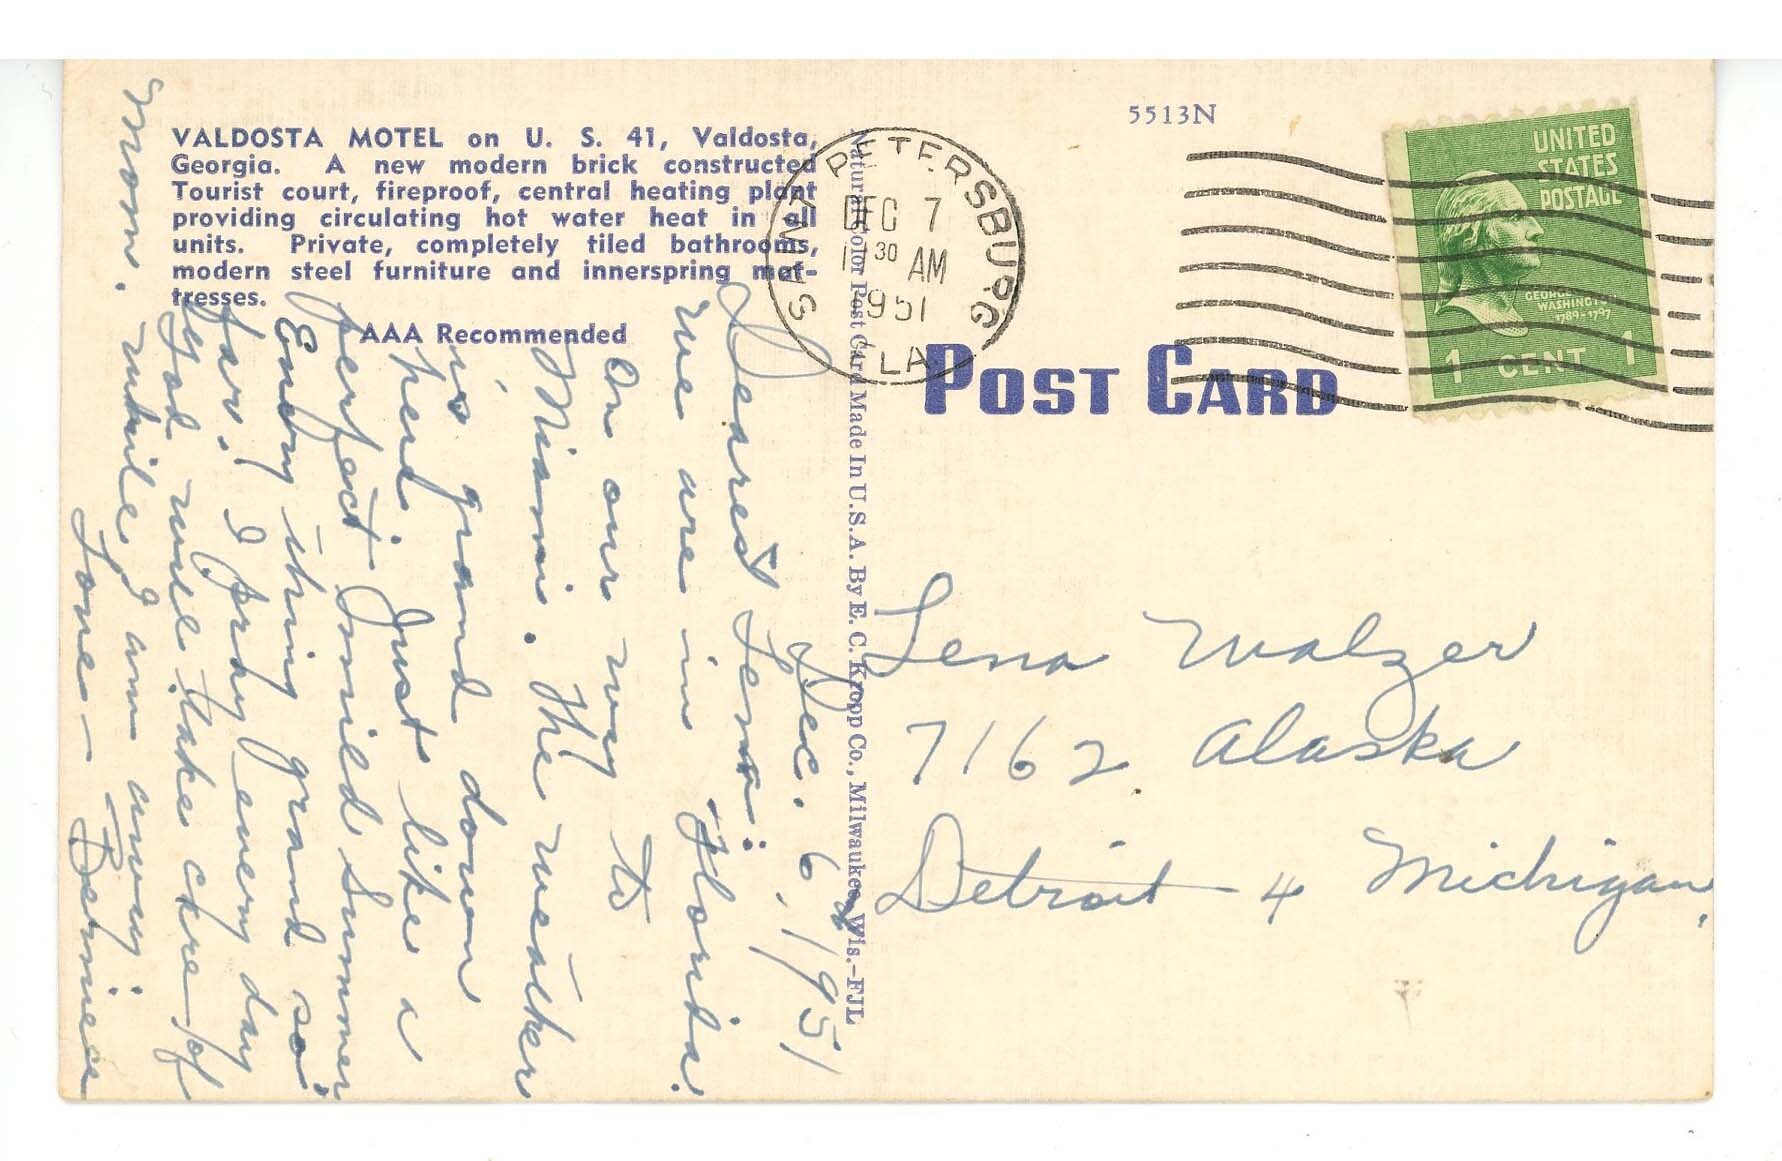 VALDOSTA MOTEL on U. S. 41, Valdosta,
Georgia. A new modern brick constructed
Tourist court, fireproof, central heating plant
providing circulating hot water heat in all
units. Private, completely tiled bathrooms,
modern steel furniture and innerspring mat-
tresses.
AAA Recommended
Dec. 6, 1951
Dearest Lena:
We are in Florida.
On our way to
Miami. The weather
is grand down
here. Just like a
perfect mild summer
Every thing grand so
far. I pray every day
God will take care of
Mom. while I am away.
Love - Bernice
Natural Color Post Card Made In U.S.A. By E. C. Kropp Co., Milwaukee, Wis.-FJL
5513N
SAINT PETERSBURG
DEC 7
30 AM
1951
FLA
UNITED
STATES
POSTAGE
GEORGE
WASHINGTON
1789-1797
1 CENT 1
POST CARD
Lena Walzer
7162 Alaska
Detroit - 4 Michigan,